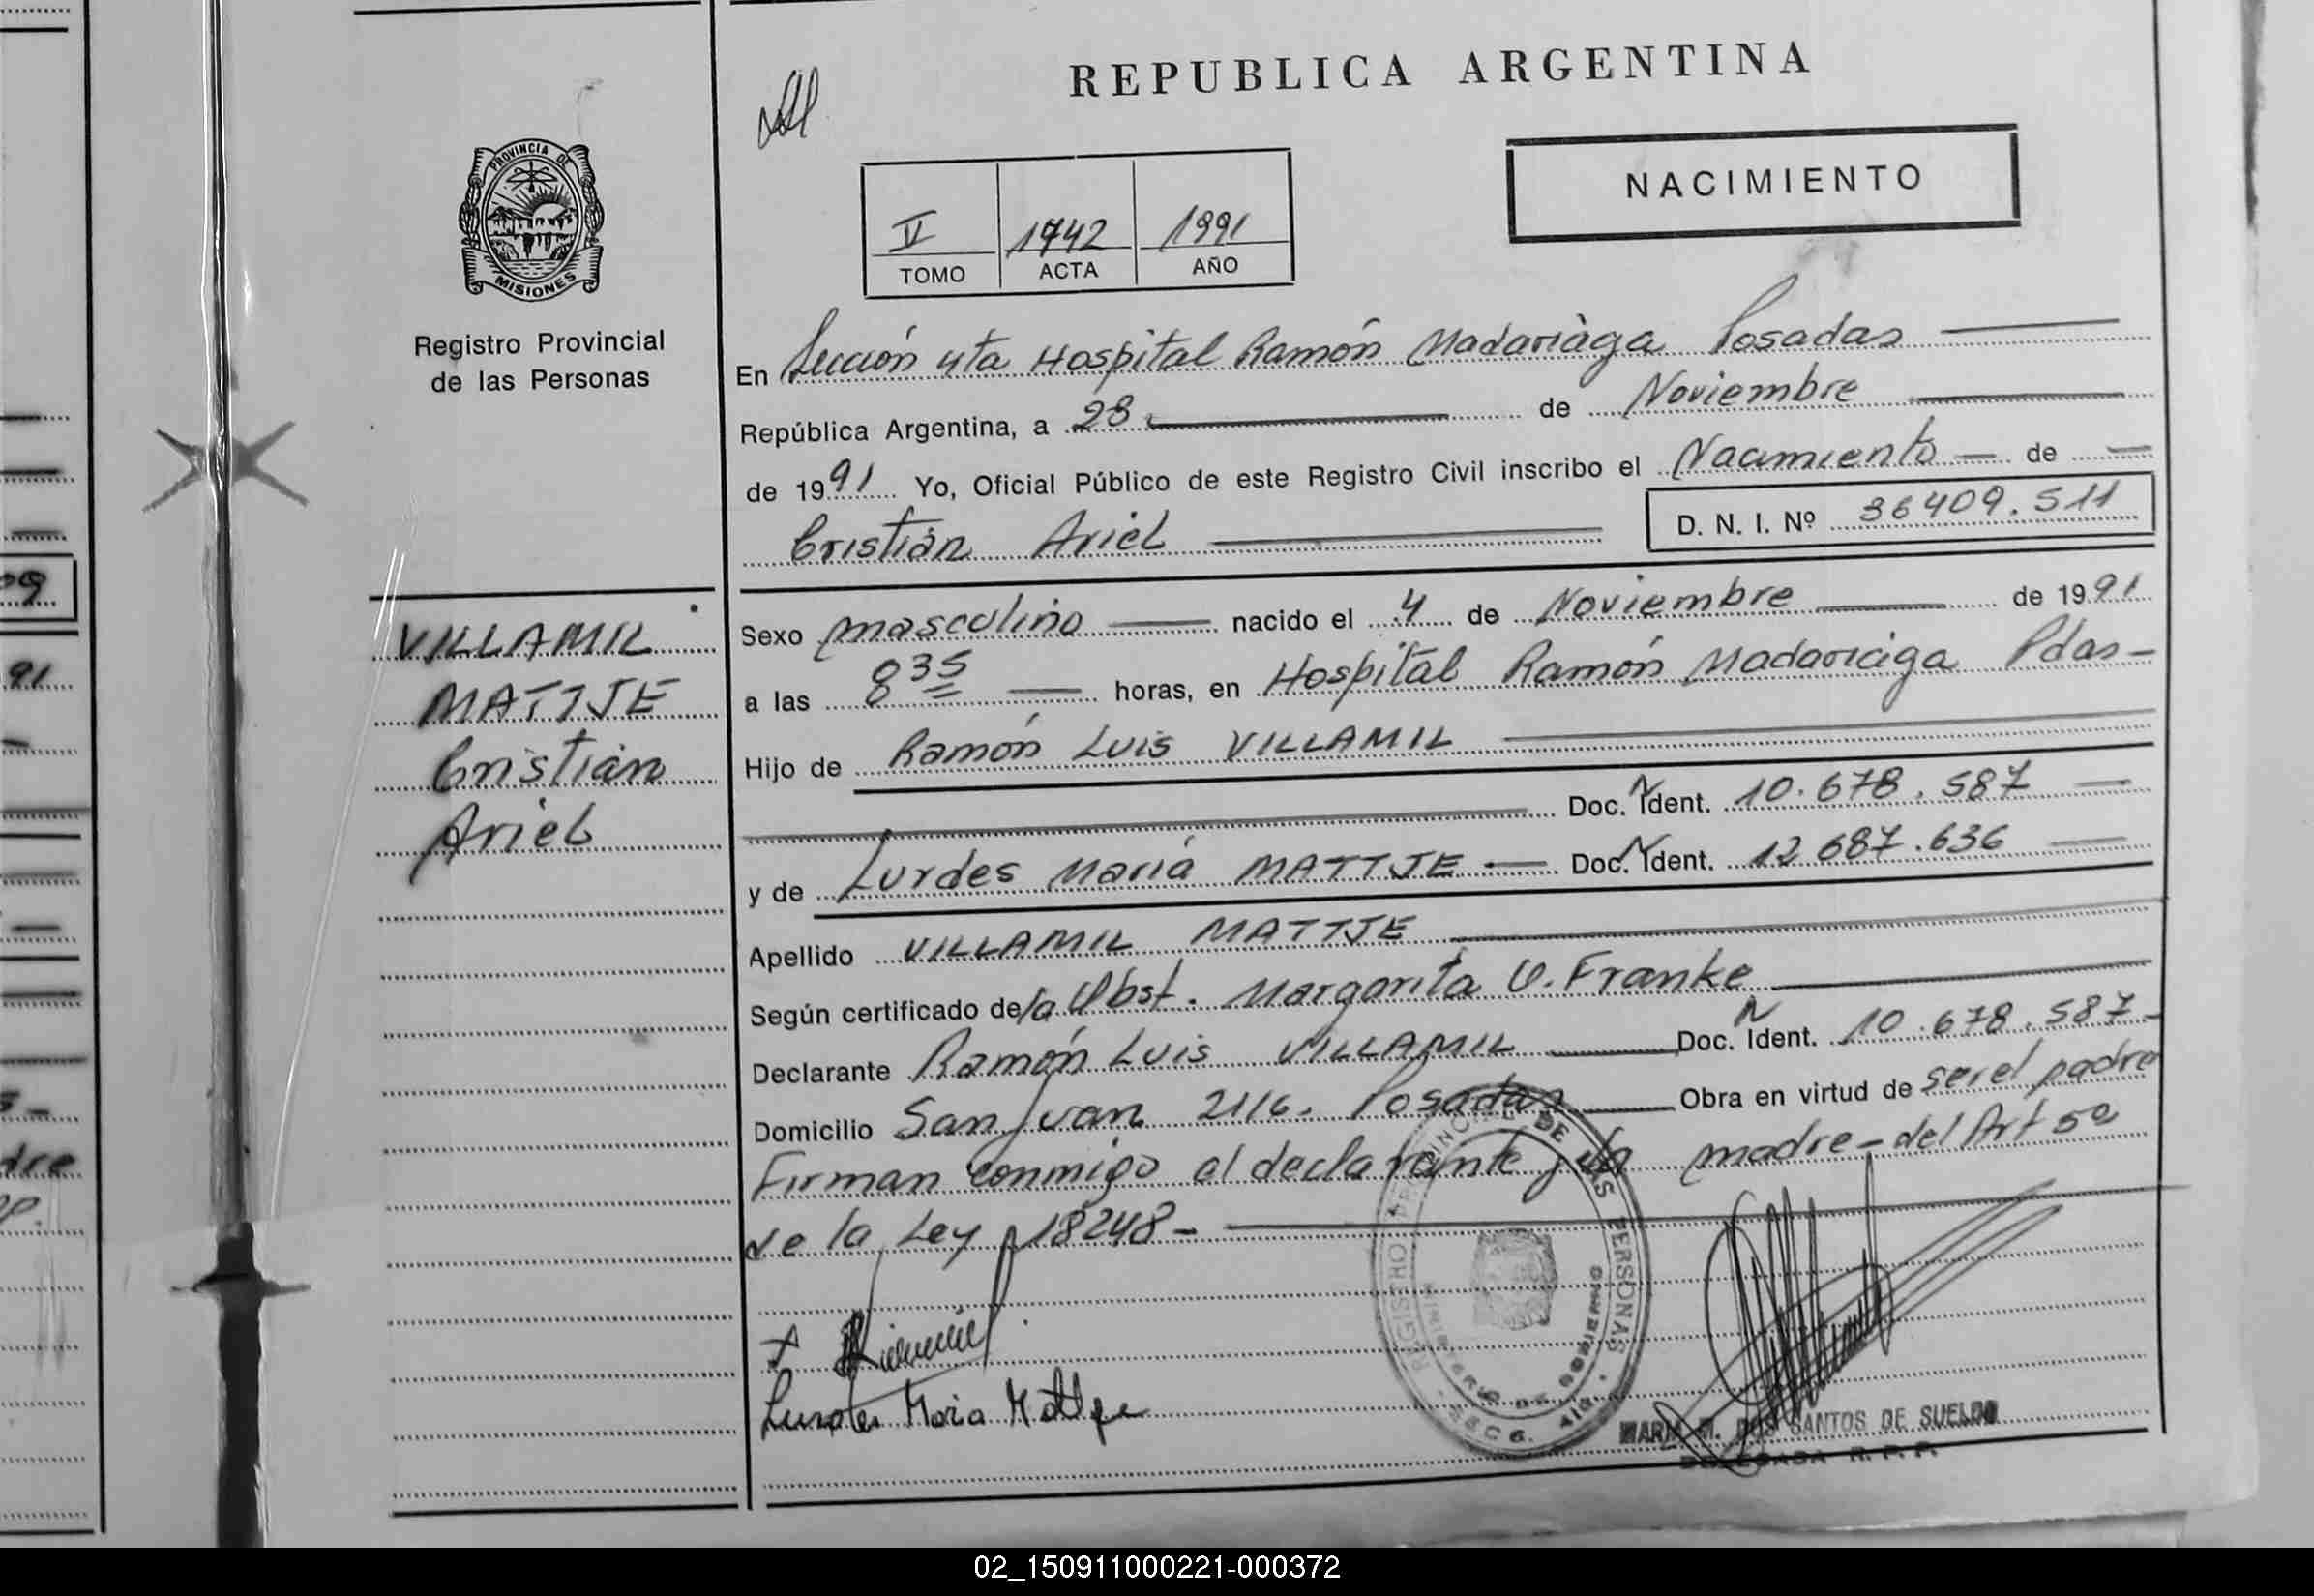 REPUBLICA ARGENTINA
PROVINCIA DE
MISIONES
Registro Provincial
de las Personas
NACIMIENTO
1742 1991
TOMO ACTA AÑO
En Sección 4ta Hospital Ramón Madariàga Posadas
República Argentina, a 28 de Noviembre
de 1991 Yo, Oficial Público de este Registro Civil inscribo el Nacimiento de
Cristián Ariel D. N. I. Nº 36409.511
VILLAMIL
MATTJE
Cristián
Ariel
Sexo masculino nacido el 4 de Noviembre de 1991
a las 8 35 horas, en Hospital Ramón Madariaga Pdas-
Hijo de Ramón Luis VILLAMIL
Doc. N Ident. 10.678.587
y de Lurdes Maria MATTJE Doc. N Ident. 12 687.636
Apellido VILLAMIL MATTJE
Según certificado de la Obst. Margarita V. Franke
Declarante Ramón Luis VILLAMIL Doc. N Ident. 10.678.587-
Domicilio San Juan 2116. Posadas Obra en virtud de ser el padre
Firman conmigo el declarante y la madre - del Art 5º
de la Ley 18248-
REGISTRO PROVINCIAL DE LAS PERSONAS
MINISTERIO DE GOBIERNO
Lurdes Maria Mattje
MARIA M. DOS SANTOS DE SUELDO
DELEGADA R. P. P.
dre
09
91
02_150911000221-000372